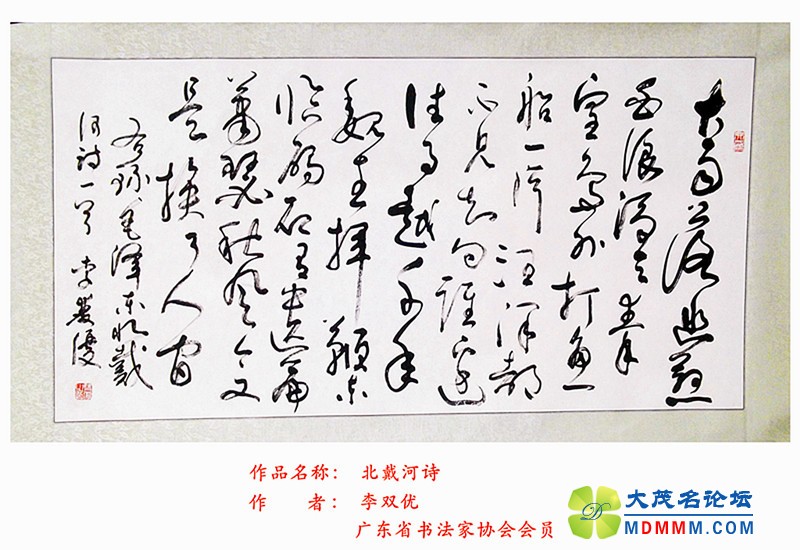 大雨落幽燕
白浪滔天秦
皇岛外打鱼
船一片汪洋都
不见知向谁边
往事越千年
魏武挥鞭东
临碣石有遗篇
萧瑟秋风今又
是换了人间
右录毛泽东北戴
河诗一首 李双优
作品名称： 北戴河诗
作 者： 李双优
广东省书法家协会会员
大茂名论坛
MDMMM.COM